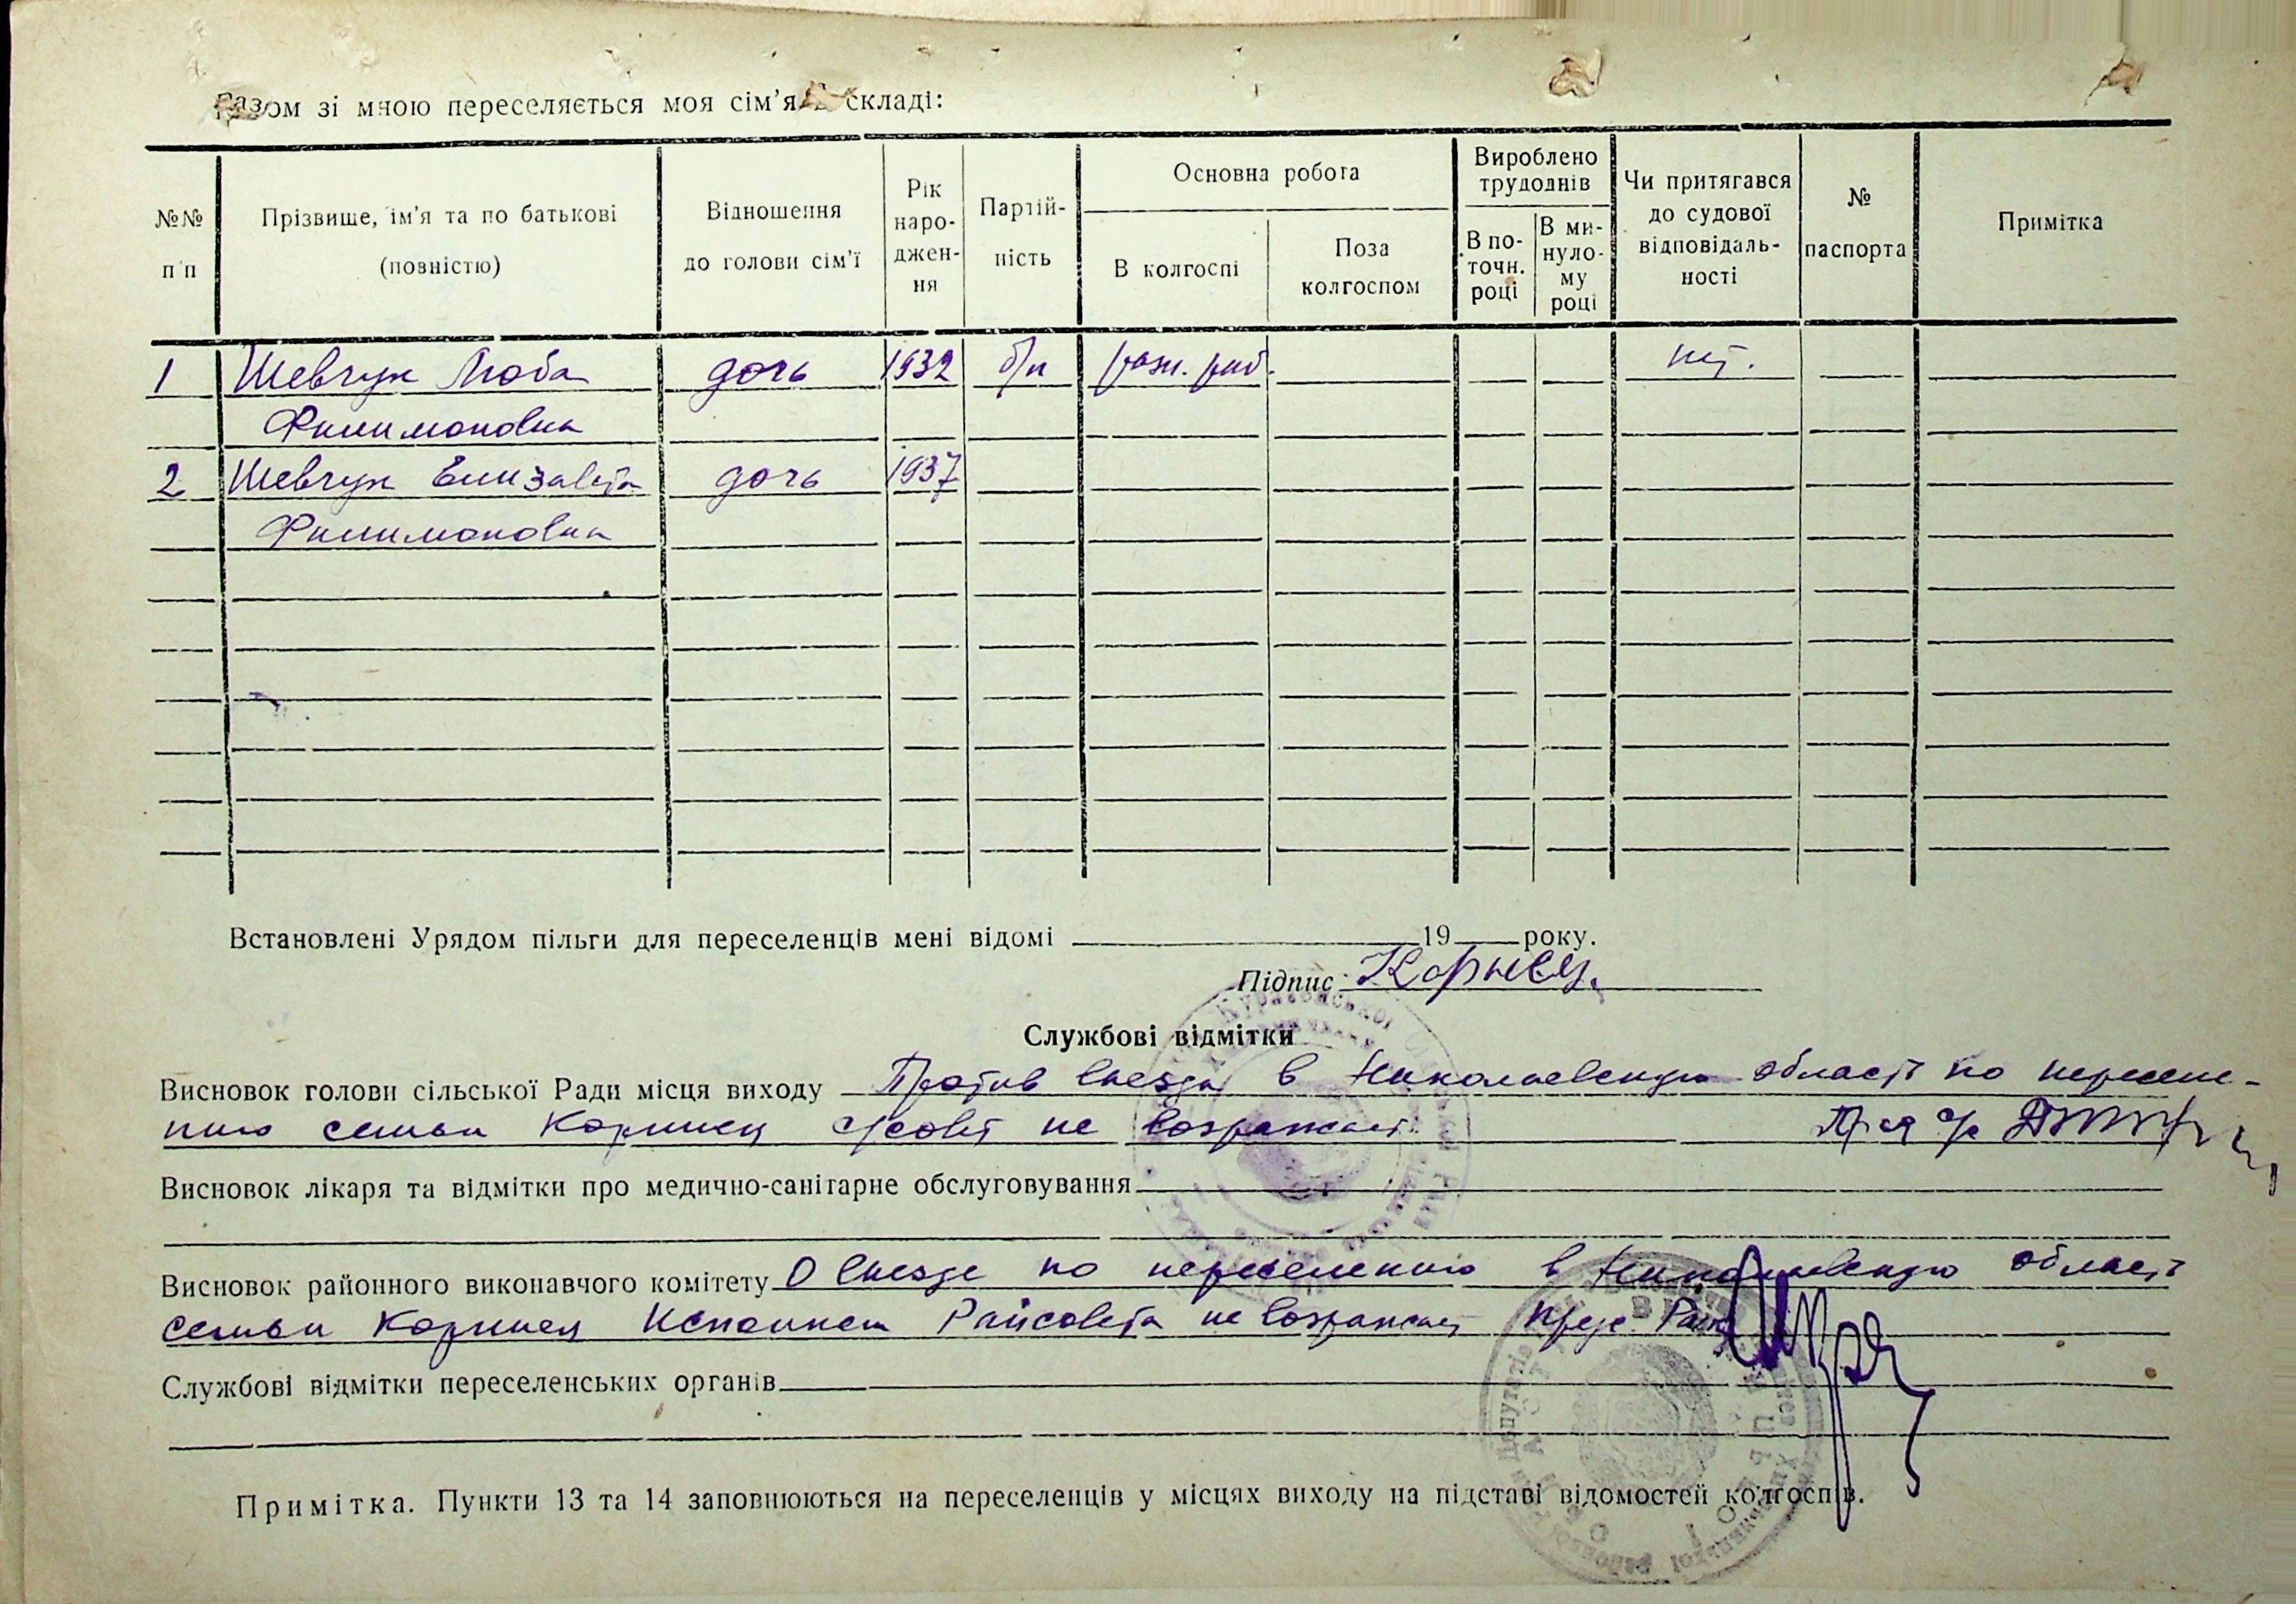 Разом зі мною переселяється моя сім'я в складі:
№№ п/п
Прізвище, ім'я та по батькові (повністю)
Відношення до голови сім'ї
Рік народження
Партійність
Основна робота
В колгоспі
Поза колгоспом
Вироблено трудоднів
В поточн. році
В минулому році
Чи притягався до судової відповідальності
№ паспорта
Примітка
1 Шевчук Люба дочь 1932 б/п разн. раб. нет.
Филимоновна
2 Шевчук Елизавета дочь 1937
Филимоновна
Встановлені Урядом пільги для переселенців мені відомі 19 року.
Підпис Корниец.
Службові відмітки
Висновок голови сільської Ради місця виходу Против выезда в Николаевскую область по переселе-
нию семьи Корниец с/совет не возражает. Пр-ля с/с
Висновок лікаря та відмітки про медично-санітарне обслуговування
Висновок районного виконавчого комітету О выезде по переселению в Николаевскую область
семьи Корниец Исполком Райсовета не возражает Пред.
Службові відмітки переселенських органів
Примітка. Пункти 13 та 14 заповнюються на переселенців у місцях виходу на підставі відомостей колгоспів.